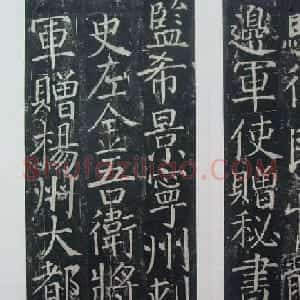 邊軍使贈秘書
監希景寧州刺
史左金吾衛將
軍贈楊州大都